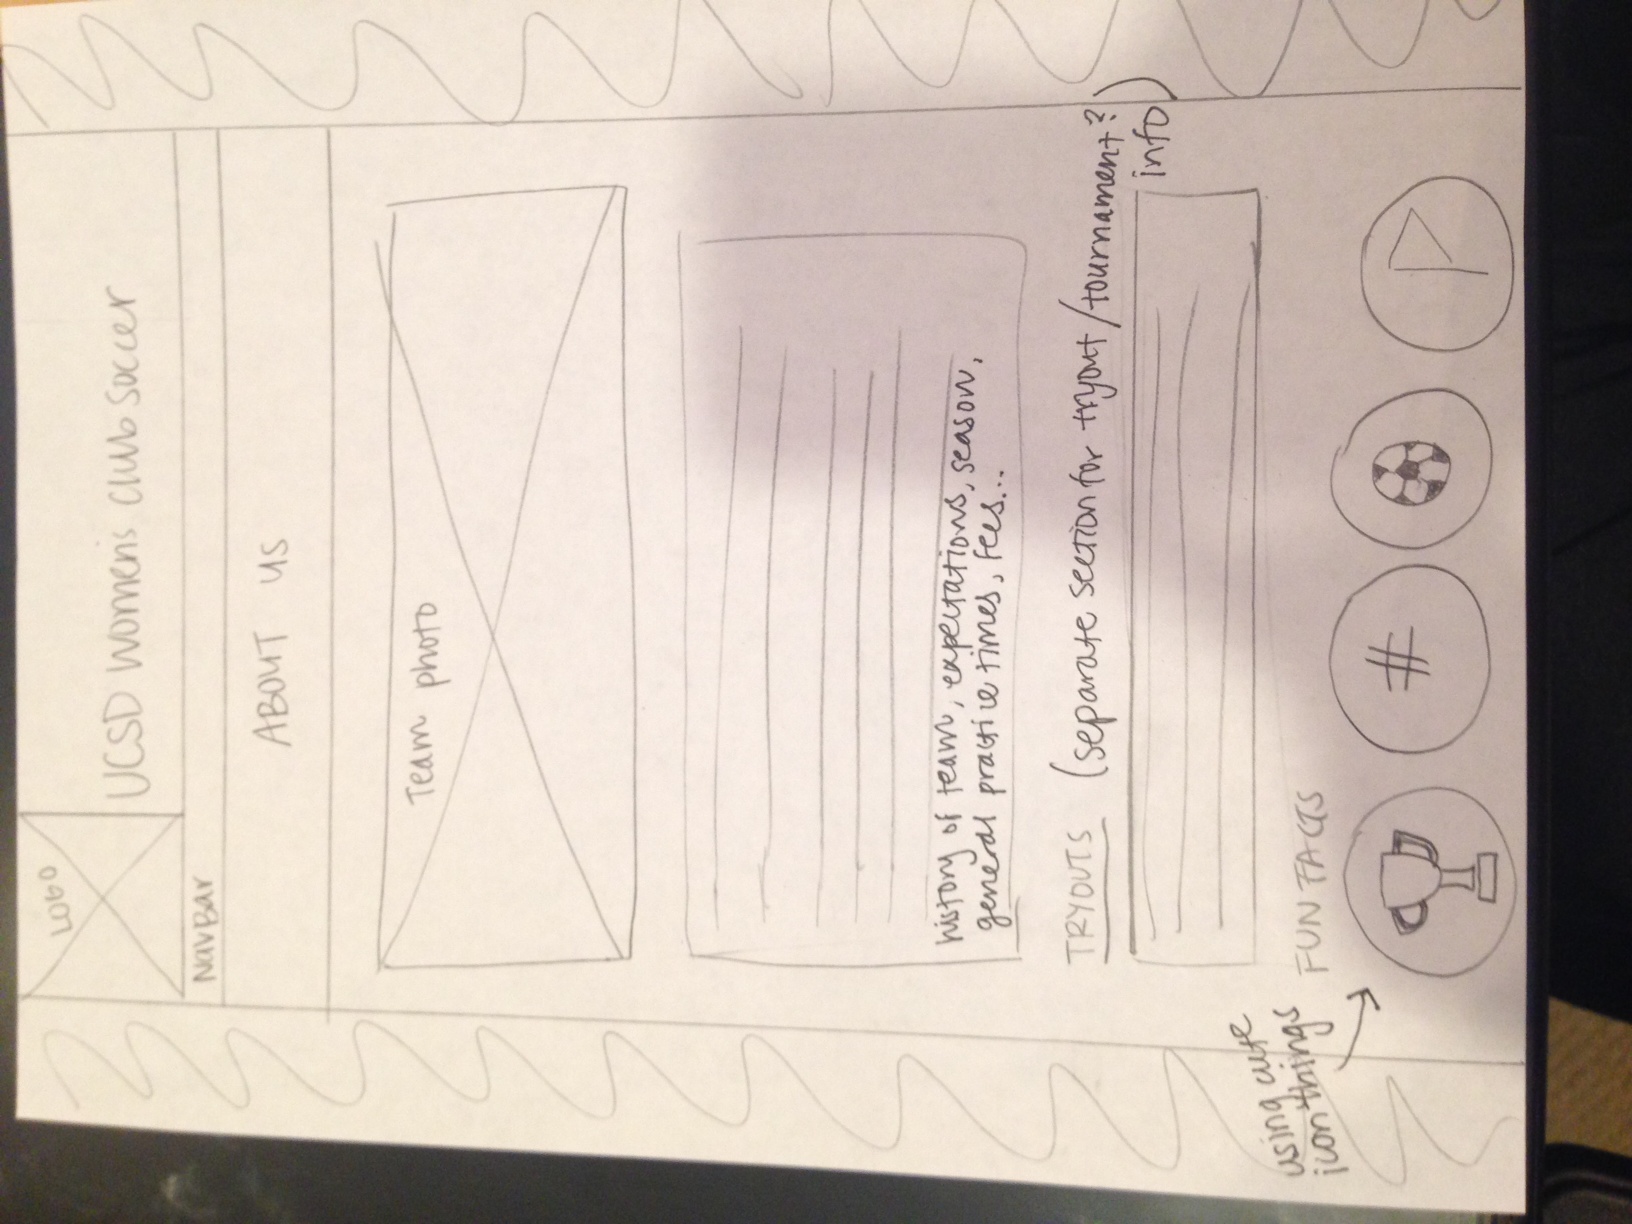 LOGO
UCSD Womens Club Soccer
NavBar
ABOUT US
Team photo
history of team, expectations, season,
general practice times, fees...
TRYOUTS (separate section for tryout/tournament?
info)
using cute
icon things
FUN FACTS
#